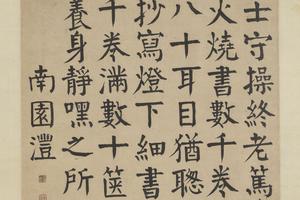 士守操終老篤
火燒書數千卷
八十耳目猶聰
抄寫燈下細書
千卷滿數十篋
養身靜嘿之所
南園澧